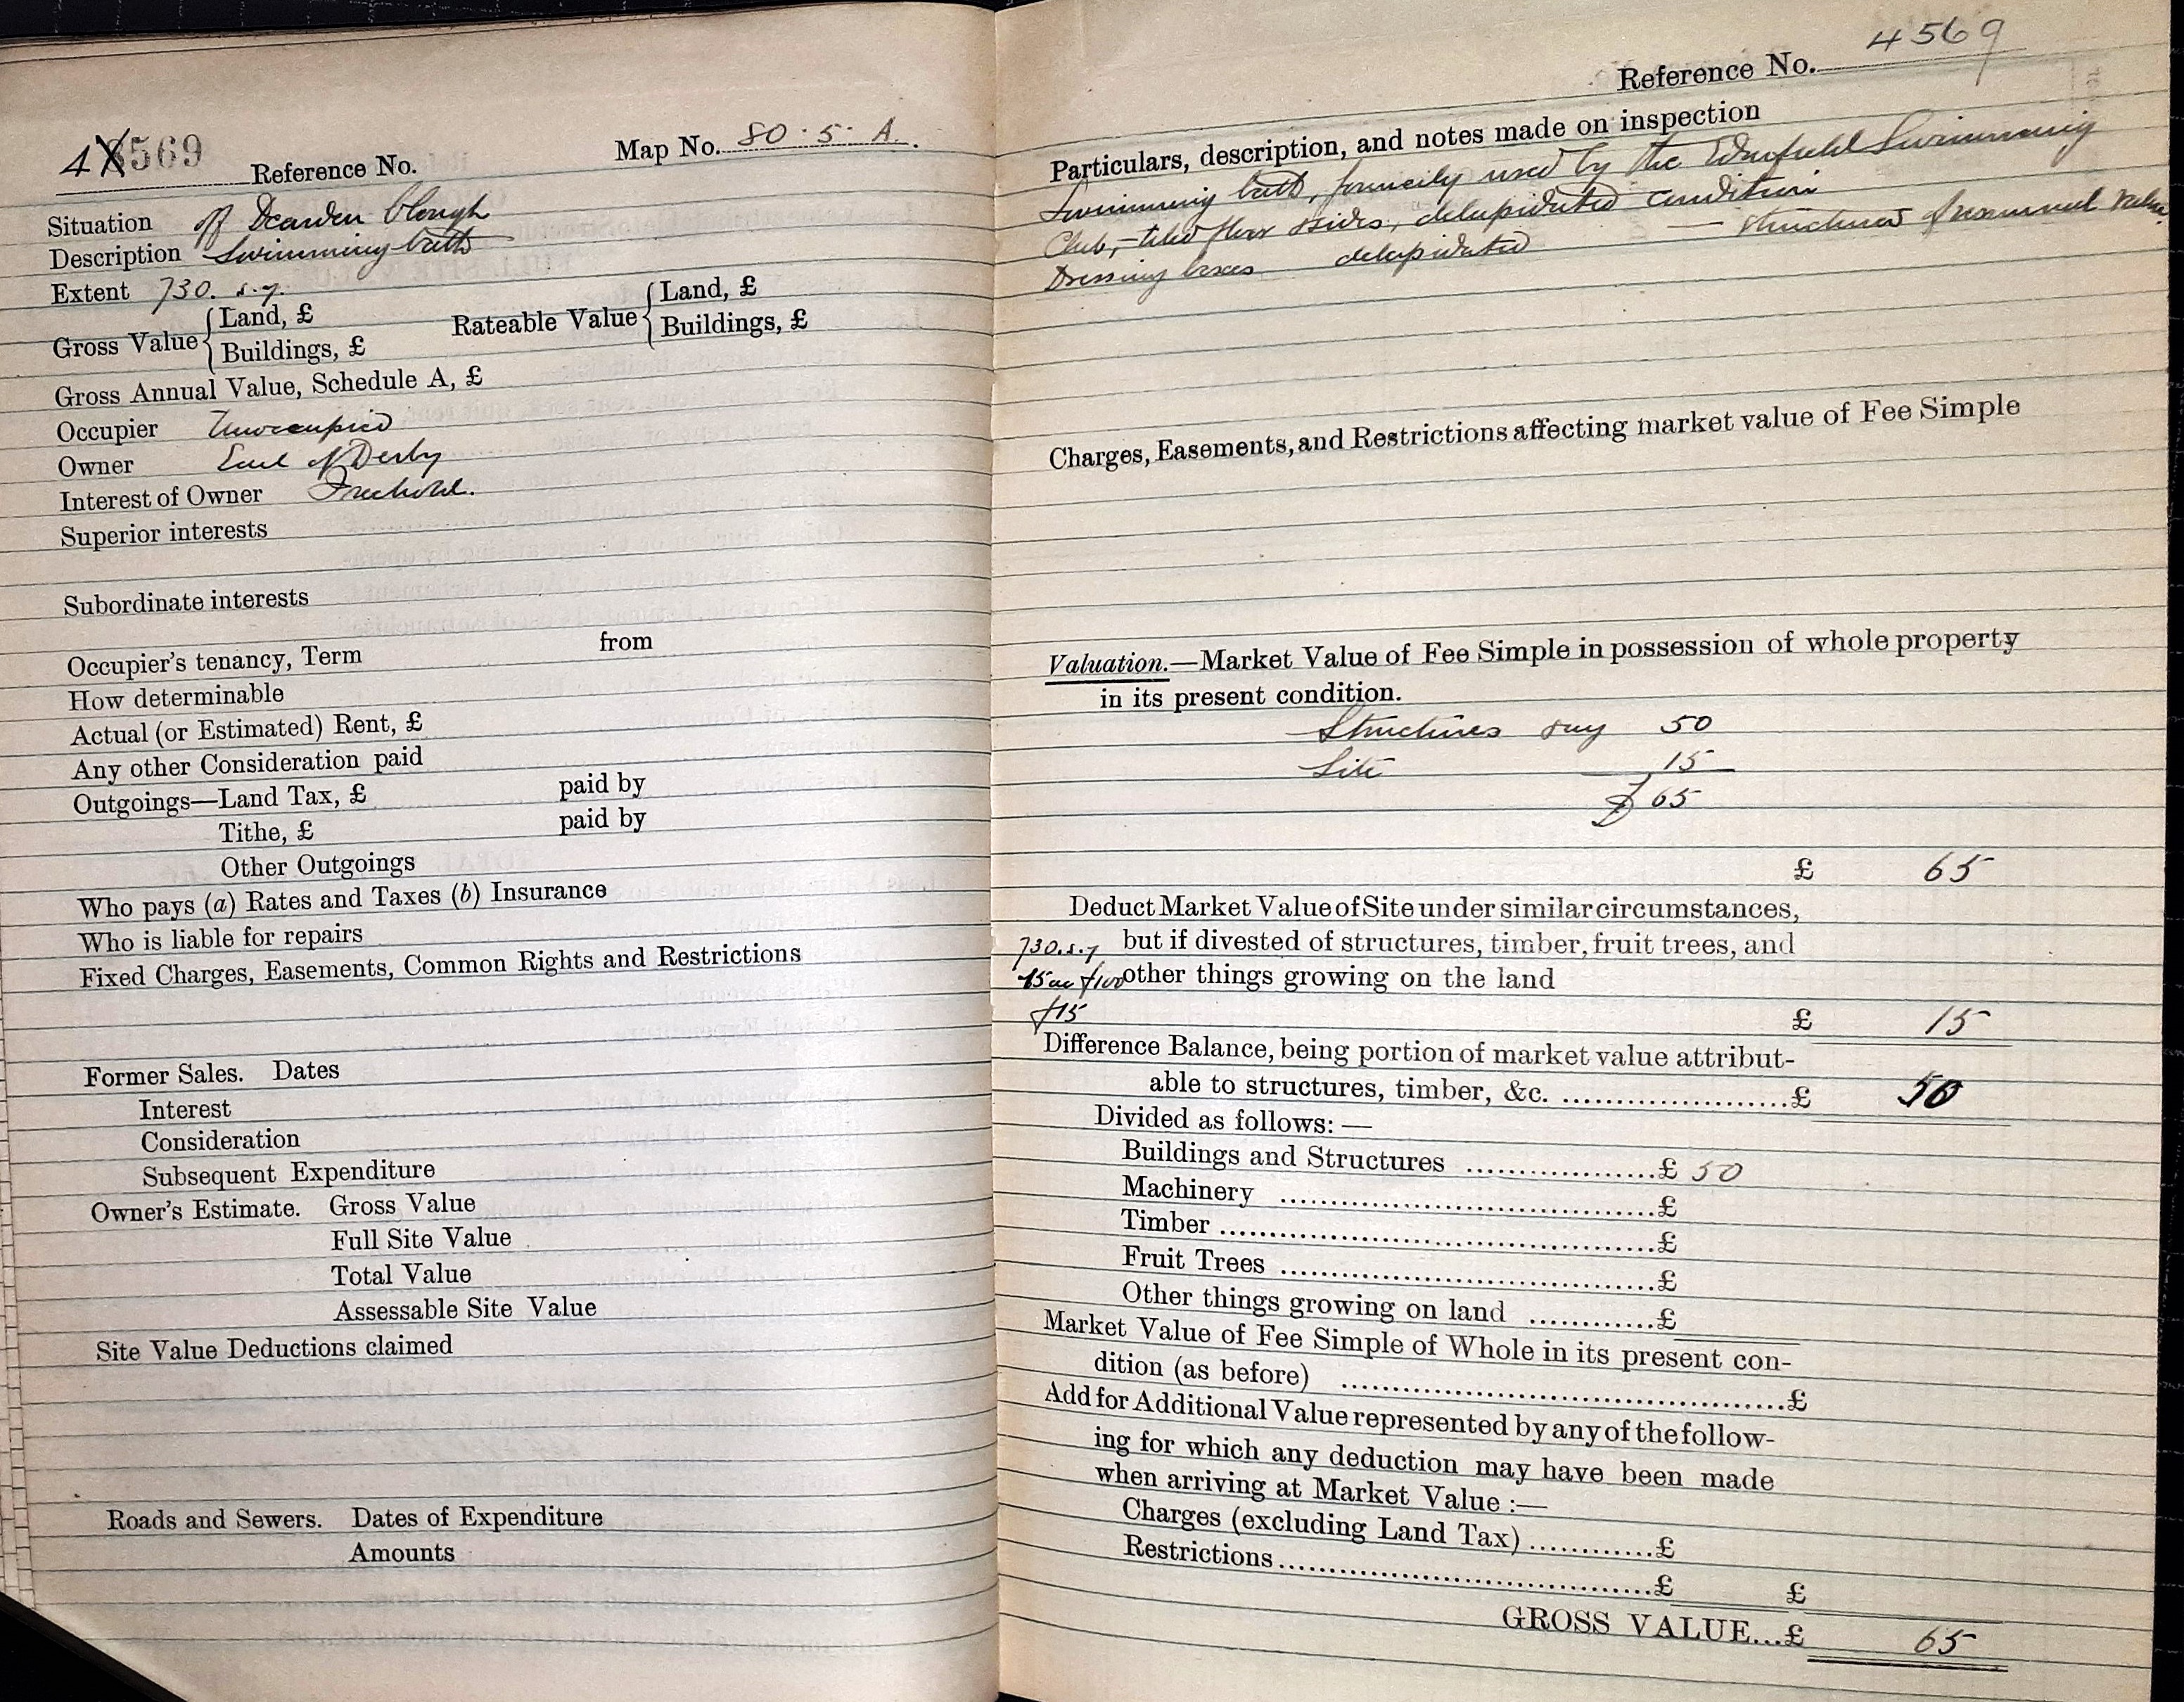 4569 Reference No. Map No. 80.5.A.
Situation off Dearden Clough
Description Swimming bath
Extent 730. s.y.
Gross Value { Land, £
Buildings, £
Rateable Value { Land, £
Buildings, £
Gross Annual Value, Schedule A, £
Occupier Unoccupied
Owner Earl of Derby
Interest of Owner Freehold.
Superior interests
Subordinate interests
Occupier's tenancy, Term from
How determinable
Actual (or Estimated) Rent, £
Any other Consideration paid
Outgoings—Land Tax, £ paid by
Tithe, £ paid by
Other Outgoings
Who pays (a) Rates and Taxes (b) Insurance
Who is liable for repairs
Fixed Charges, Easements, Common Rights and Restrictions
Former Sales. Dates
Interest
Consideration
Subsequent Expenditure
Owner's Estimate. Gross Value
Full Site Value
Total Value
Assessable Site Value
Site Value Deductions claimed
Roads and Sewers. Dates of Expenditure
Amounts
Reference No. 4569
Particulars, description, and notes made on inspection
Swimming bath, formerly used by the Edenfield Swimming
Club,—tiled floor & sides, delapidated condition
Dressing boxes delapidated — structures of nominal value.
Charges, Easements, and Restrictions affecting market value of Fee Simple
Valuation.—Market Value of Fee Simple in possession of whole property
in its present condition.
Structures say 50
Site 15
£ 65
£ 65
Deduct Market Value of Site under similar circumstances,
730. s.y but if divested of structures, timber, fruit trees, and
£100 other things growing on the land
£15
£ 15
Difference Balance, being portion of market value attribut-
able to structures, timber, &c. ....................£ 50
Divided as follows: —
Buildings and Structures .................£ 50
Machinery ...................................£
Timber ........................................£
Fruit Trees ..................................£
Other things growing on land ............£
Market Value of Fee Simple of Whole in its present con-
dition (as before) .........................................£
Add for Additional Value represented by any of the follow-
ing for which any deduction may have been made
when arriving at Market Value :—
Charges (excluding Land Tax) ............£
Restrictions ...................................£ £
GROSS VALUE...£ 65